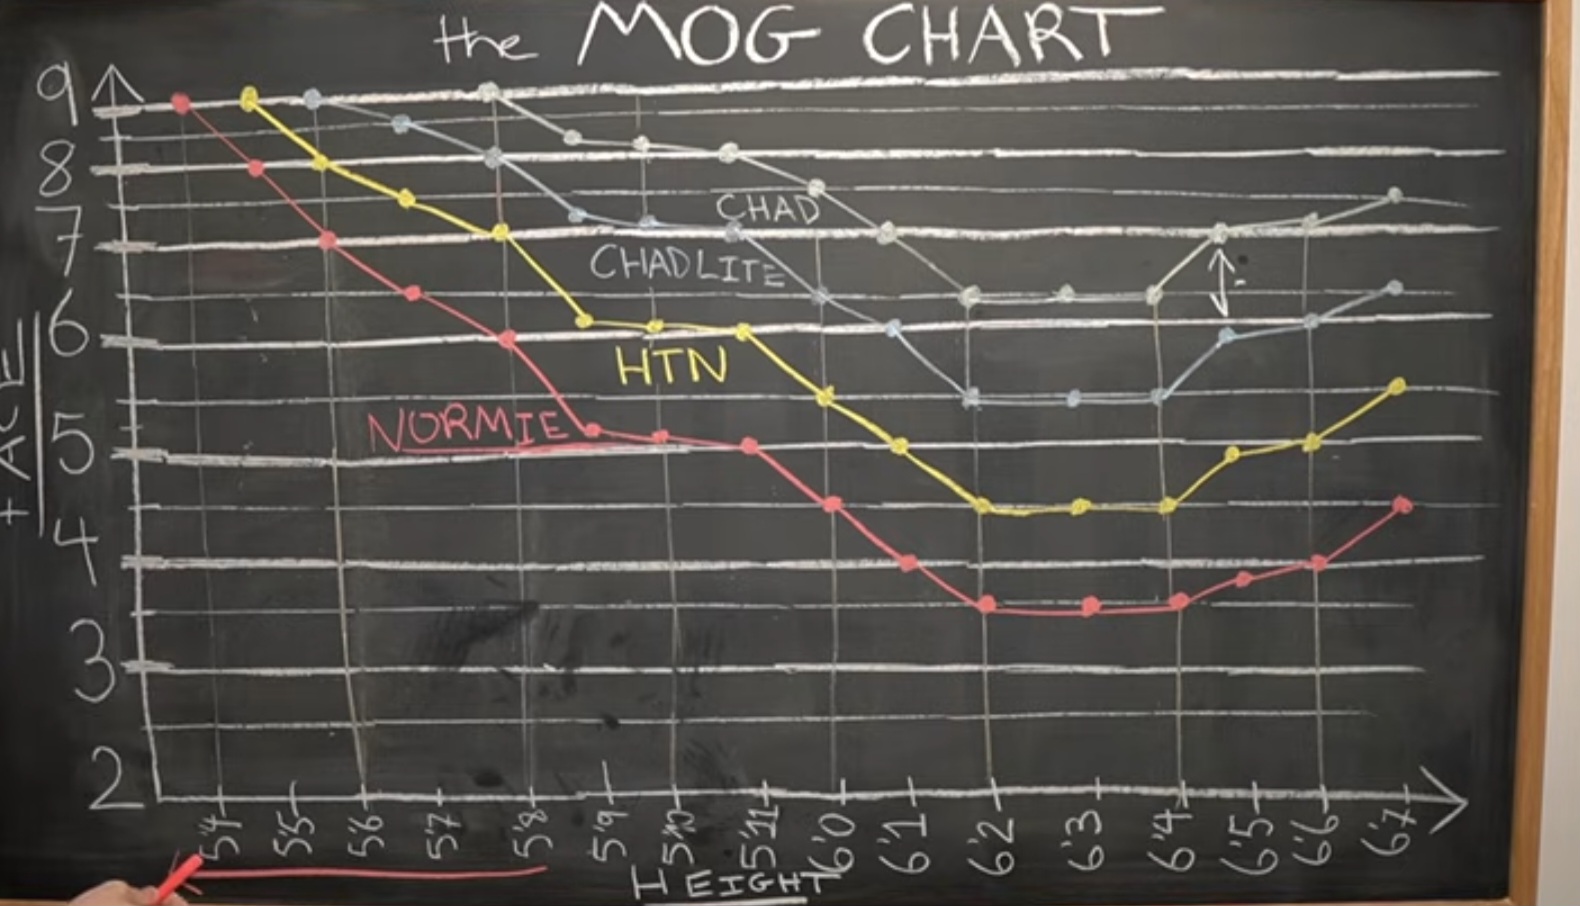 the MOG CHART
9
8
7
6
5
4
3
2
CHAD
CHADLITE
HTN
NORMIE
5'4 5'5 5'6 5'7 5'8 5'9 5'10 5'11 6'0 6'1 6'2 6'3 6'4 6'5 6'6 6'7
HEIGHT